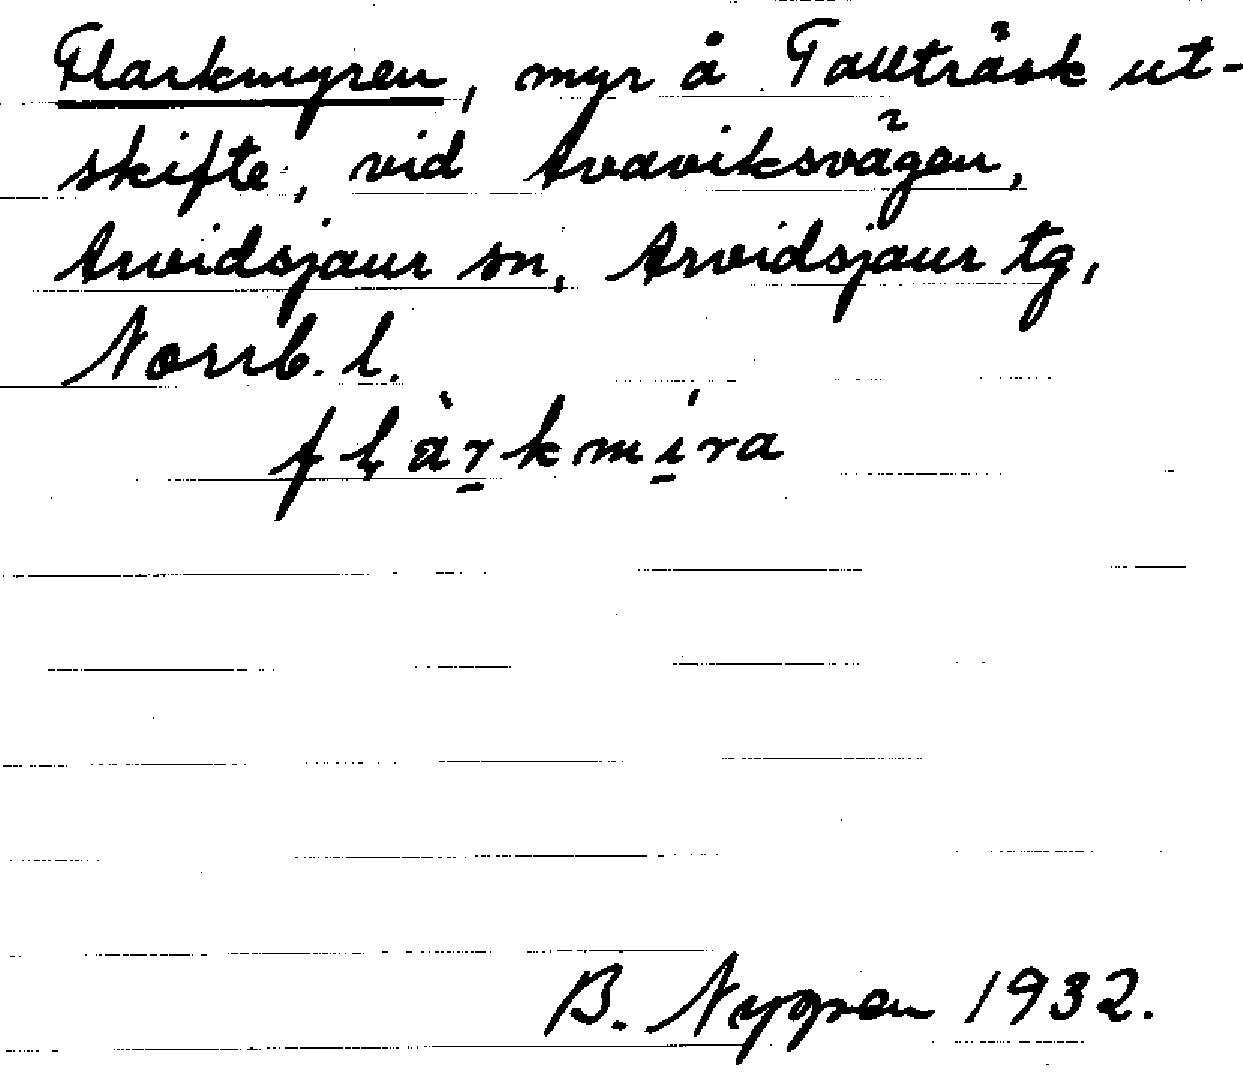 Flarkmyren, myr å Tallträsk ut-
skifte, vid Avaviksvägen,
Arvidsjaur sn, Arvidsjaur tg,
Norrb. l.
flàrkmíra
B. Nygren 1932.